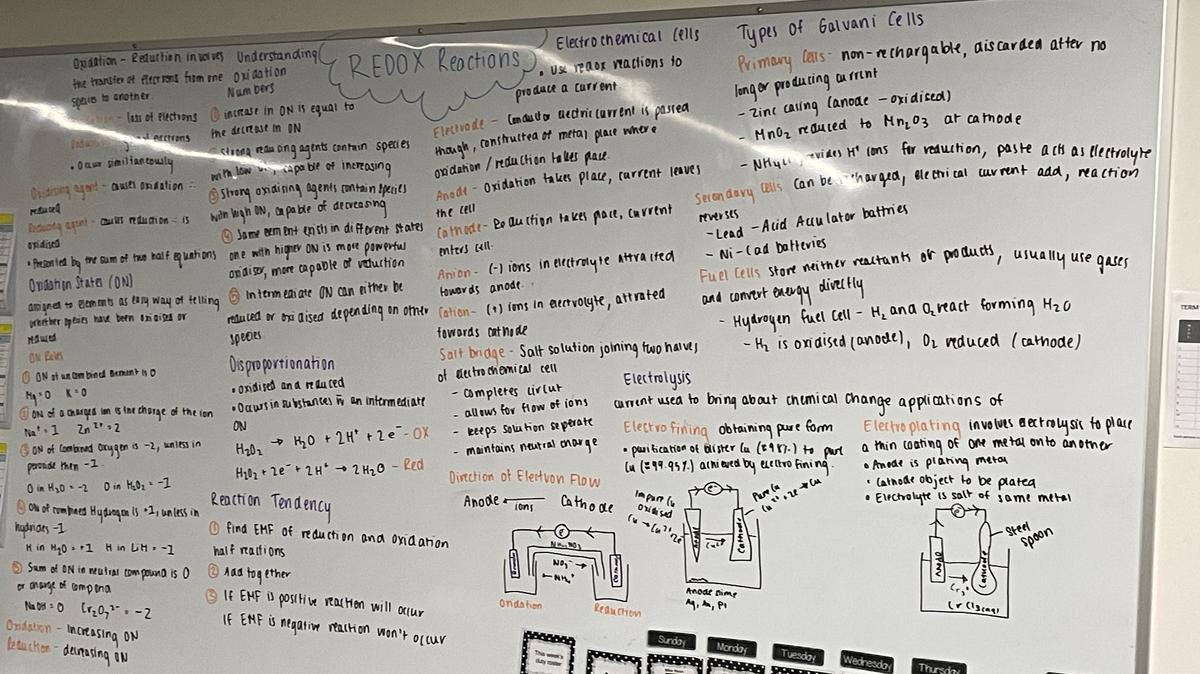 REDOX Reactions
Oxidation - Reduction involves
the transfer of electrons from one
species to another.
- loss of electrons
• Occur similtaneously
Oxidising agent - causes oxidation ∴
reduced
Reducing agent - causes reduction ∴ is
oxidised
• Presented by the sum of two half equations
Oxidation States (ON)
assigned to elements as easy way of telling
whether species have been oxidised or
reduced
ON Rules
① ON of uncombined element is 0
Mg = 0 K = 0
② ON of a charged ion is the charge of the ion
③ ON of combined oxygen is -2, unless in
peroxide then -1.
O in H₂O = -2 O in H₂O₂ = -1
④ ON of combined Hydrogen is +1, unless in
hydrides -1
H in H₂O = +1 H in LiH = -1
⑤ Sum of ON in neutral compound is 0
or charge of
NaOH = 0 Cr₂O₇²⁻ = -2
Oxidation - Increasing ON
Reduction - decreasing ON
Understanding
Oxidation
Numbers
① increase in ON is equal to
the decrease in ON
Strong reducing agents contain species
with low capable of increasing
③ Strong oxidising agents contain species
with high ON, capable of decreasing
④ Same element exists in different states
one with higher ON is more powerful
oxidiser, more capable of reduction
⑤ Intermediate ON can either be
reduced or oxidised depending on other
species.
Disproportionation
• oxidised and reduced
• Occurs in substances in an intermediate
ON
H₂O₂ → H₂O + 2H⁺ + 2e⁻ - OX
H₂O₂ + 2e⁻ + 2H⁺ → 2H₂O - Red
Reaction Tendency
① find EMF of reduction and oxidation
half reactions
② Add together
③ If EMF is positive reaction will occur
If EMF is negative reaction won't occur
Electrochemical Cells
• Use redox reactions to
produce a current
Electrode - Conductor electric current is passed
though, constructed of metal place where
oxidation / reduction takes place.
Anode - Oxidation takes place, current leaves
the cell
Cathode - Reduction takes place, current
enters cell.
Anion - (-) ions in electrolyte attracted
towards anode.
Cation - (+) ions in electrolyte, attrated
towards cathode
Salt bridge - Salt solution joining two halves
of electrochemical cell
- Completes circuit
- allows for flow of ions
- keeps solution seperate
- maintains neutral charge
Direction of Electron Flow
Anode ← ions Cathode
NO₃⁻ →
← NH₄⁺
Oxidation
Reduction
Types of Galvani Cells
Primary Cells - non-rechargable, discarded after no
longer producing current
- Zinc casing (anode - oxidised)
- MnO₂ reduced to Mn₂O₃ at cathode
- H⁺ ions for reduction, paste acts as electrolyte
Secondary Cells can be charged, electrical current add, reaction
reverses
- Lead - Acid Acculator battries
- Ni-Cad batteries
Fuel Cells store neither reactants or products, usually use gases
and convert energy directly
- Hydrogen fuel cell - H₂ and O₂ react forming H₂O
- H₂ is oxidised (anode), O₂ reduced (cathode)
Electrolysis
current used to bring about chemical change applications of
Electrofining obtaining pure form
• purification of blister Cu (≈98%) to pure
Cu (≈99.95%) achieved by electro fining.
Impure Cu
oxidised
Pure Cu
Anode
Cu²⁺
Cathode
Anode slime
Electroplating involves electrolysis to place
a thin coating of one metal onto another
• Anode is plating metal
• Cathode object to be plated
• Electrolyte is salt of same metal
Anode
Cathode
Steel
spoon
CrCl₃(aq)
TERM
This week's
duty roster
Sunday
Monday
Tuesday
Wednesday
Thursday